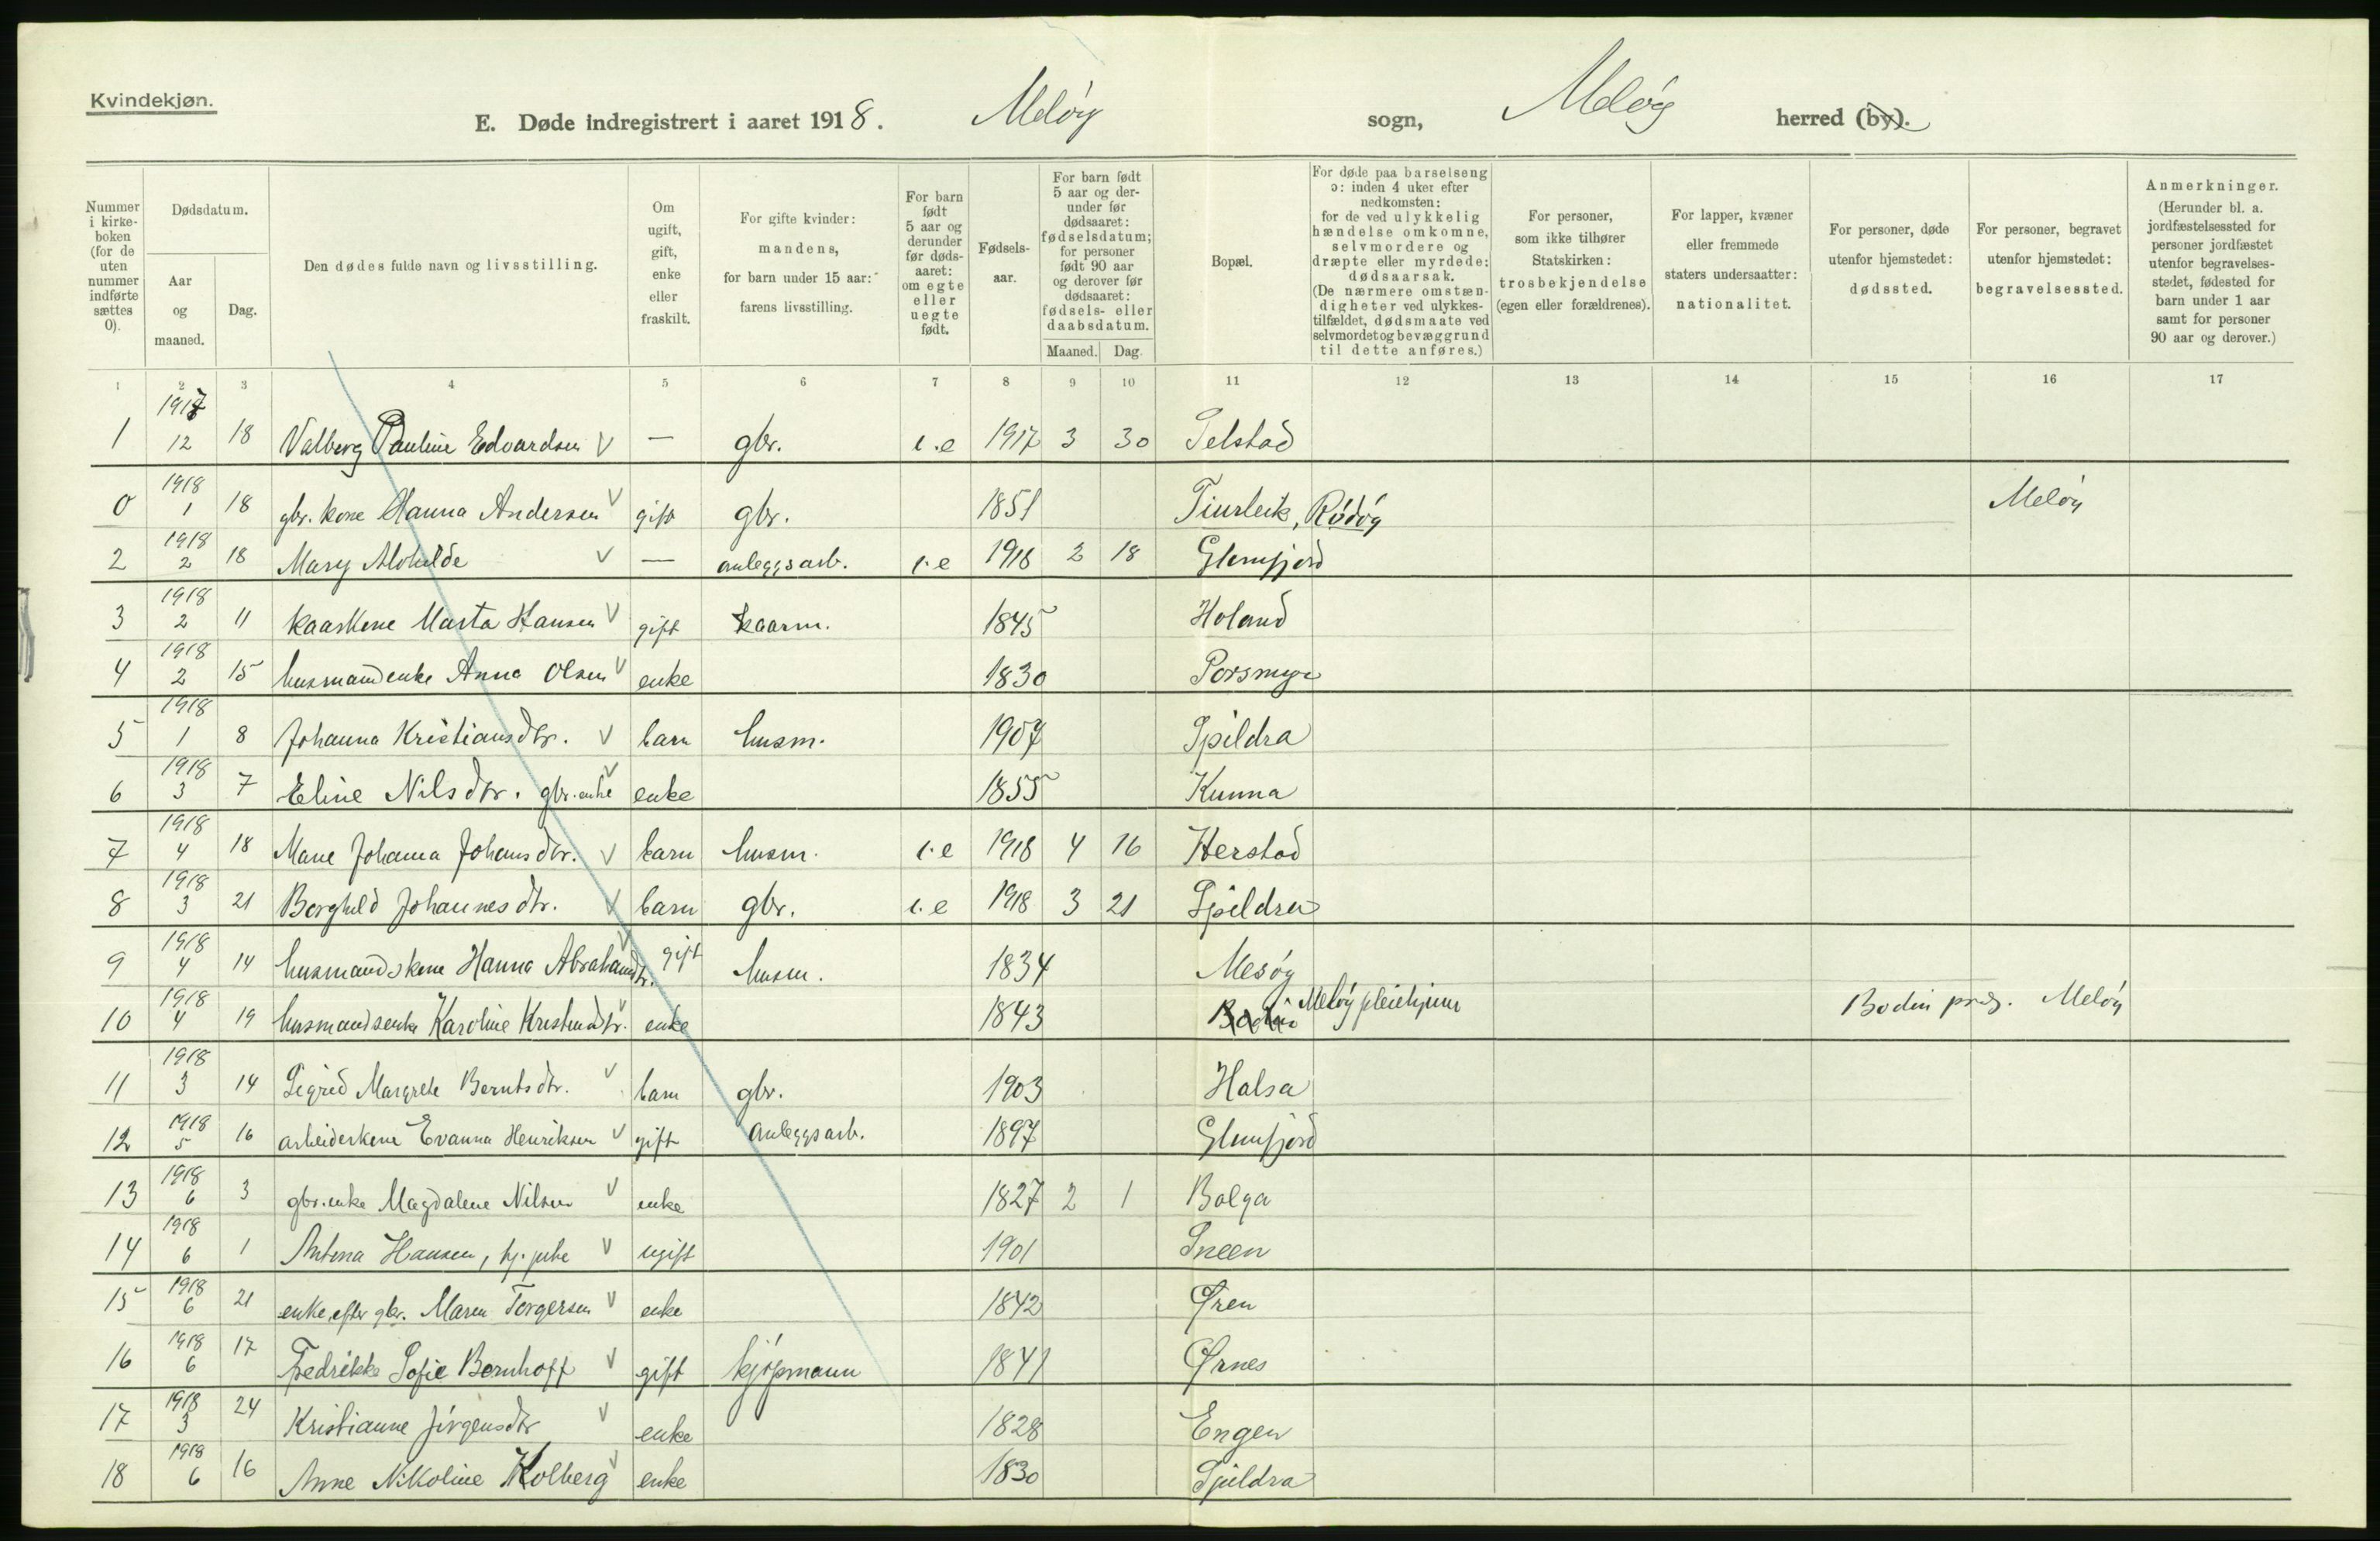 Kvindekjøn.
E. Døde indregistrert i aaret 1918. Meløy sogn, Meløy herred (by).
Nummer i kirke-boken (for de uten nummer indførte sættes 0).
Dødsdatum.
Aar og maaned.
Dag.
Den dødes fulde navn og livsstilling.
Om ugift, gift, enke eller fraskilt.
For gifte kvinder: mandens, for barn under 15 aar: farens livsstilling.
For barn født 5 aar og derunder før døds-aaret: om egte eller uegte født.
Fødsels-aar.
For barn født 5 aar og der-under før dødsaaret: fødselsdatum; for personer født 90 aar og derover før dødsaaret: fødsels- eller daabsdatum.
Maaned. Dag.
Bopæl.
For døde paa barselseng ɔ: inden 4 uker efter nedkomsten: for de ved ulykkelig hændelse omkomne, selvmordere og dræpte eller myrdede: dødsaarsak. (De nærmere omstæn-digheter ved ulykkes-tilfældet, dødsmaate ved selvmordet og bevæggrund til dette anføres.)
For personer, som ikke tilhører Statskirken: trosbekjendelse (egen eller forældrenes).
For lapper, kvæner eller fremmede staters undersaatter: nationalitet.
For personer, døde utenfor hjemstedet: dødssted.
For personer, begravet utenfor hjemstedet: begravelsessted.
Anmerkninger. (Herunder bl. a. jordfæstelsessted for personer jordfæstet utenfor begravelses-stedet, fødested for barn under 1 aar samt for personer 90 aar og derover.)
1 2 3 4 5 6 7 8 9 10 11 12 13 14 15 16 17
1 1917 12 18 Valberg Pauline Edvardsen V — gbr. e 1917 3 30 Selstad
0 1918 1 18 gbr. kone Hanna Andersen V gift gbr. 1851 Rødøy Meløy
2 1918 2 18 Mary V — anleggsarb. e 1918 2 18 Glomfjord
3 1918 2 11 kaarkone Marta Hansen V gift kaarm. 1845 Holand
4 1918 2 15 husmandenke Anna Olsen V enke 1830 Porsmyr
5 1918 1 8 Johanna Kristiansdtr. V barn husm. 1907 Spildra
6 1918 3 7 Eline Nilsdtr. gbr. enke V enke 1855 Kunna
7 1918 4 18 Marie Johanna Johansdtr. V barn husm. e 1918 4 16 Herstad
8 1918 3 21 Borghild Johannesdtr. V barn gbr. e 1918 3 21 Spildra
9 1918 4 14 husmandskone Hanna Abrahamdtr. V gift husm. 1834 Mesøy
10 1918 4 19 husmandsenke Karoline V enke 1843 Bodin Meløy pleiehjem Bodin Meløy
11 1918 3 14 Sigrid Margrete Berntsdtr. V barn gbr. 1903 Halsa
12 1918 5 16 arbeiderkone Evanna Henriksen V gift anleggsarb. 1897 Glomfjord
13 1918 6 3 gbr. enke Magdalene Nilsen V enke 1827 2 1 Bolga
14 1918 6 1 Antona Hansen, V ugift 1901 Sneen
15 1918 6 21 enke efter gbr. Maren Torgersen V enke 1842 Øren
16 1918 6 17 Fredrikke Sofie Bernhoft V gift kjøpmann 1841 Ørnes
17 1918 3 24 Kristianne Jørgensdtr V enke 1828 Engen
18 1918 6 16 Anne Nikoline Kolberg V enke 1830 Spildra